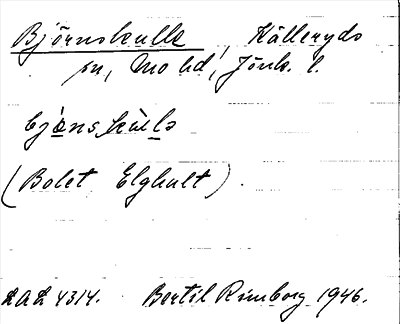 Björnskulle, Källeryds
sn, Mo hd, Jönk. l.
bjö̀nskùlə
(Bolet Elghult).
LAL 4314. Bertil Rimborg 1946.